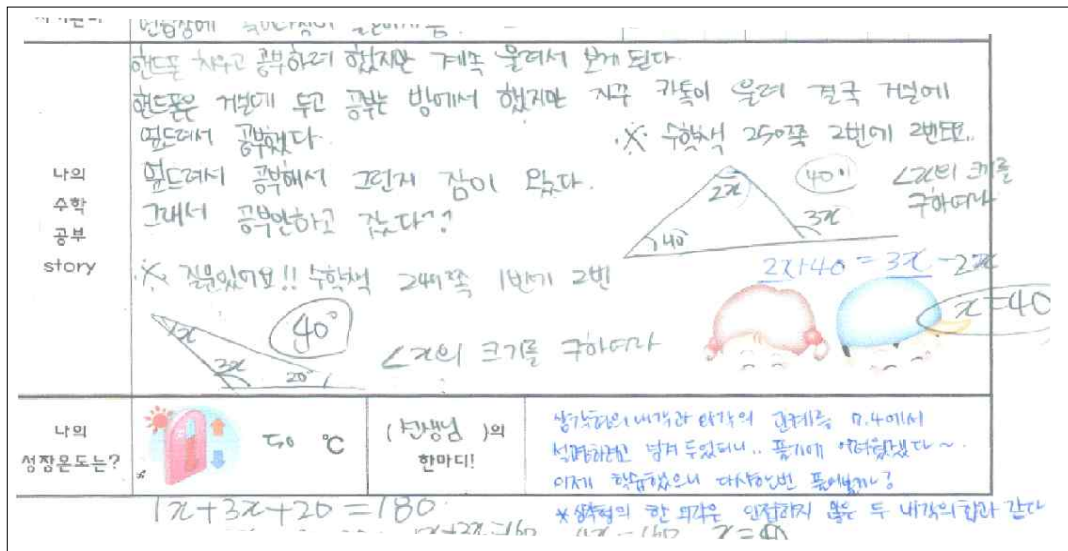 핸드폰 치우고 공부하려 했지만 계속 울려서 보게 된다.
핸드폰은 거실에 두고 공부는 방에서 했지만 자꾸 카톡이 울려 결국 거실에
엎드려서 공부했다.
엎드려서 공부해서 그런지 잠이 왔다.
그래서 공부안하고 잤다??
나의
수학
공부
story
※ 수학책 250쪽 2번에 2번도..
2x
40°
3x
40°
∠x의 크기를
구하여라
2x+40 = 3x - 2x
x=40
※ 질문있어요!! 수학책 249쪽 1번에 2번
x
3x
20°
40°
∠x의 크기를 구하여라
나의
성장온도는?
50 ℃
(선생님 )의
한마디!
삼각형의 내각과 외각의 관계를 7.4에서
설명하려고 남겨 두었더니.. 풀기에 어려웠겠다~
이제 학습했으니 다시한번 풀어볼까?
*삼각형의 한 외각은 인접하지 않은 두 내각의 합과 같다
1x+3x+20 =180
x=40